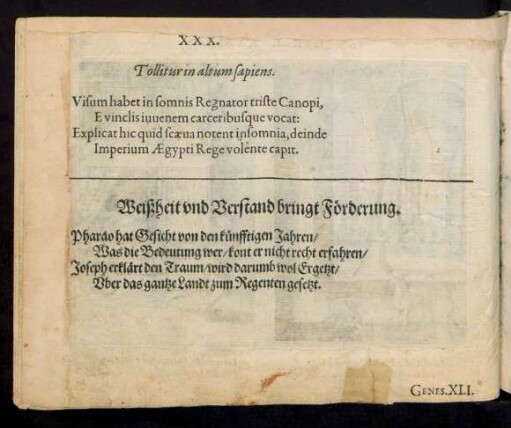 XXX.
Tollitur in altum ſapiens.
Viſum habet in ſomnis Regnator triſte Canopi,
E vinclis iuuenem carceribuſque vocat:
Explicat hic quid ſcæua notent inſomnia, deinde
Imperium Ægypti Rege volẽnte capit.
Weißheit vnd Verſtand bringt Förderung.
Pharao hat Geſicht von den künfftigen Jahren/
Was die Bedeutung wer/ kont er nicht recht erfahren/
Joſeph erklärt den Traum/ wird darumb wol Ergetzt/
Vber das gantze Landt zum Regenten geſetzt.
GENES.XLI.